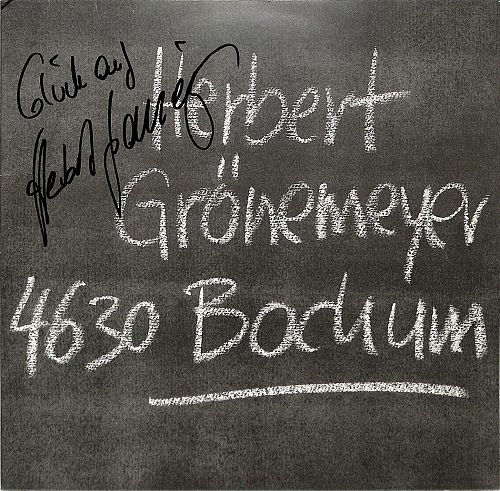 Glück auf
Herbert Grönemeyer
Herbert
Grönemeyer
4630 Bochum